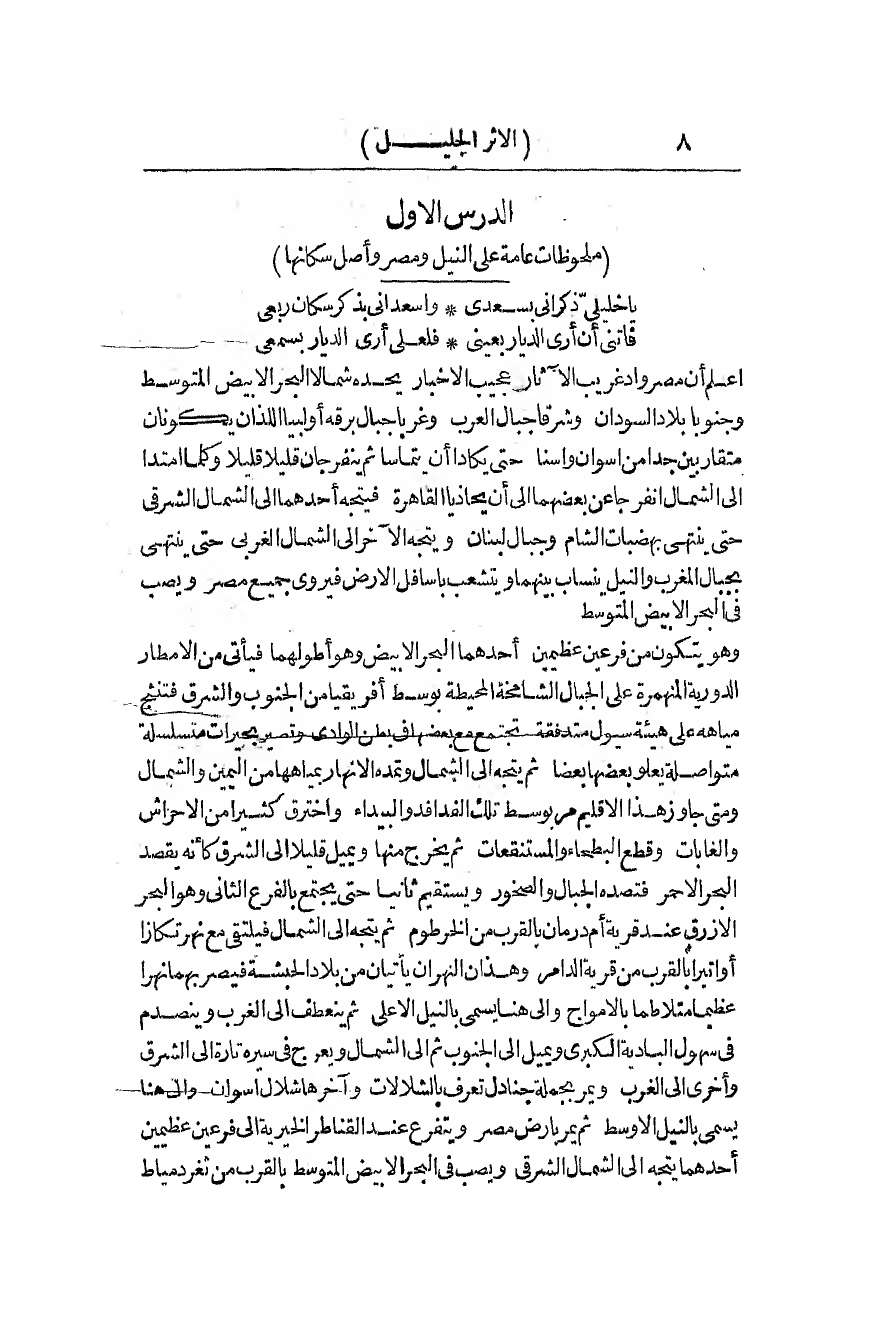 ٨ (الاثر الجليل)
الدرس الاول
(ملحوظات عامة على النيل ومصر وأصل سكانها)
ياخليليّ ذكرانى بسعدى * واسعدانى بذكر سكان ربعى
فاتنى أن أرى الديار بعينى * فلعلى أرى الديار بسمعى
اعلم أن مصر واد غريب الآثار عجيب الاخبار يحده شمالا البحر الابيض المتوسط
وجنوبا بلاد السودان وشرقا جبال العرب وغربا جبال برقه أوليبيا اللذان يكونان
متقاربين جدا من اسوان واسنا حتى يكادا أن يتماسا ثم ينفرجان قليلا قليلا وكلما امتدا
الى الشمال انفرجا عن بعضهما الى أن يحاذيا القاهرة فيتجه أحدهما الى الشمال الشرقى
حتى ينتهى بهضبات الشام وجبال لبنان ويتجه الآخر الى الشمال الغربى حتى ينتهى
بجبال المغرب والنيل ينساب بينهما ويتشعب باسافل الارض فيروى جميع مصر ويصب
فى البحر الابيض المتوسط
وهو يتكون من فرعين عظيمين أحدهما البحر الابيض وهو أطولهما فيأتى من الامطار
الدورية المنهمرة على الجبال الشامخة المحيطة بوسط أفريقيا من الجنوب والشرق فتنثج
مياهه على هيئة سيول متدفقة تجتمع مع بعضها فى بطن الوادى وتصير بحيرات متسلسلة
متواصلة يعلو بعضها بعضا ثم يتجه الى الشمال وتمده الانهار بمياهها من اليمين والشمال
ومتى جاوز هذا الاقليم مر بوسط تلك الفدافد والبيداء واخترق كثيرا من الاحراش
والغابات وقطع البطحاء والمستنقعات ثم يخرج منها ويميل قليلا الى الشرق كأنه يقصد
البحر الاحمر فتصده الجبال والصخور ويستقيم ثانيا حتى يجتمع بالفرع الثانى وهو البحر
الازرق عند قرية أم درمان بالقرب من الخرطوم ثم يتجه الى الشمال فيلتقى مع نهر تكازا
أو اتبرا بالقرب من قرية الدامر وهذان النهران يأتيان من بلاد الحبشة فيصير بهما نهرا
عظيما متلاطما بالامواج والى هنا يسمى بالنيل الاعلى ثم ينعطف الى الغرب وينصدم
فى سهول البادية الكبرى ويميل الى الجنوب ثم الى الشمال ويعرج فى سيره تارة الى الشرق
وأخرى الى الغرب ويمر بجملة جنادل تعرف بالشلالات وآخرها شلال اسوان والى هنا
يسمى بالنيل الاوسط ثم يمر بارض مصر ويتفرع عند القناطر الخيرية الى فرعين عظيمين
أحدهما يتجه الى الشمال الشرقى ويصب فى البحر الابيض المتوسط بالقرب من ثغر دمياط